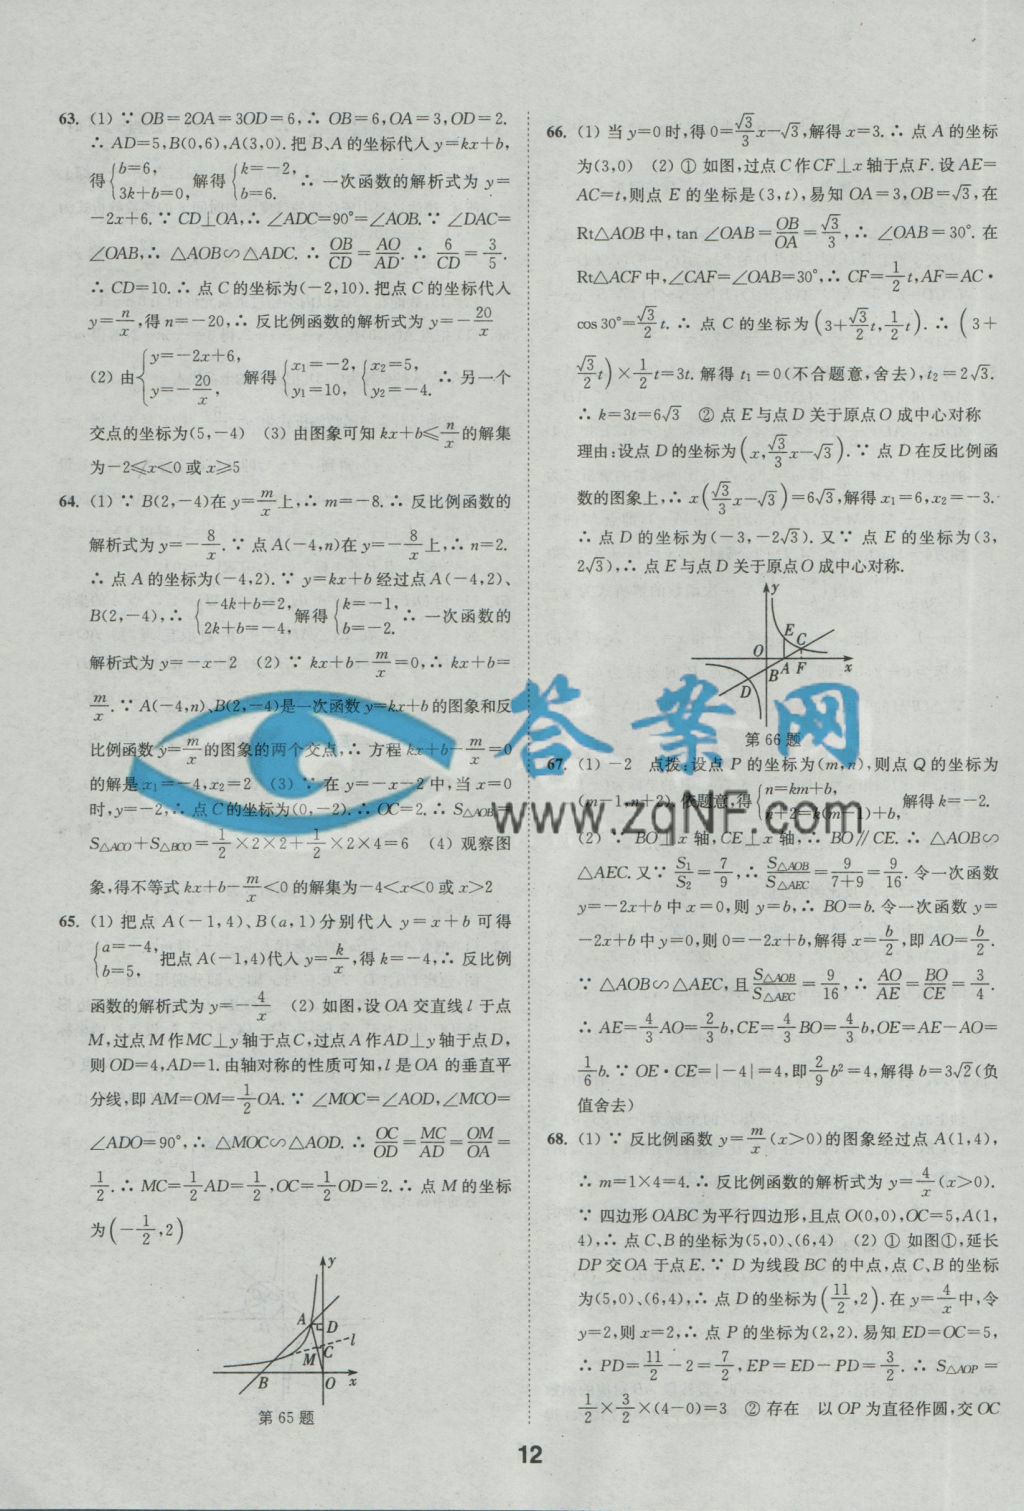 63. (1) ∵ OB=2OA=3OD=6,∴ OB=6,OA=3,OD=2.
∴ AD=5,B(0,6),A(3,0).把B、A的坐标代入y=kx+b,
得{b=6, 3k+b=0, 解得{k=-2, b=6. ∴ 一次函数的解析式为 y=
-2x+6.∵ CD⊥OA,∴ ∠ADC=90°=∠AOB.∵ ∠DAC=
∠OAB,∴ △AOB∽△ADC.∴ OB/CD=AO/AD.∴ 6/CD=3/5.
∴ CD=10.∴ 点C的坐标为(-2,10).把点C的坐标代入
y=n/x,得n=-20,∴ 反比例函数的解析式为 y=-20/x
(2) 由{y=-2x+6, y=-20/x, 解得{x₁=-2, y₁=10, {x₂=5, y₂=-4. ∴ 另一个
交点的坐标为(5,-4) (3) 由图象可知kx+b≤n/x的解集
为-2≤x<0或x≥5
64. (1) ∵ B(2,-4)在y=m/x上,∴ m=-8.∴ 反比例函数的
解析式为y=-8/x.∵ 点A(-4,n)在y=-8/x上,∴ n=2.
∴ 点A的坐标为(-4,2).∵ y=kx+b经过点A(-4,2)、
B(2,-4),∴ {-4k+b=2, 2k+b=-4, 解得{k=-1, b=-2. ∴ 一次函数的
解析式为y=-x-2 (2) ∵ kx+b-m/x=0,∴ kx+b=
m/x.∵ A(-4,n)、B(2,-4)是一次函数y=kx+b的图象和反
比例函数y=m/x的图象的两个交点,∴ 方程kx+b-m/x=0
的解是x₁=-4,x₂=2 (3) ∵ 在y=-x-2中,当x=0
时,y=-2,∴ 点C的坐标为(0,-2).∴ OC=2.∴ S△AOB=
S△ACO+S△BCO=1/2×2×2+1/2×2×4=6 (4) 观察图
象,得不等式kx+b-m/x<0的解集为-4<x<0或x>2
65. (1) 把点A(-1,4)、B(a,1)分别代入y=x+b可得
{a=-4, b=5, 把点A(-1,4)代入y=k/x,得k=-4,∴ 反比例
函数的解析式为y=-4/x (2) 如图,设OA交直线l于点
M,过点M作MC⊥y轴于点C,过点A作AD⊥y轴于点D,
则OD=4,AD=1.由轴对称的性质可知,l是OA的垂直平
分线,即AM=OM=1/2OA.∵ ∠MOC=∠AOD,∠MCO=
∠ADO=90°,∴ △MOC∽△AOD.∴ OC/OD=MC/AD=OM/OA=
1/2.∴ MC=1/2AD=1/2,OC=1/2OD=2.∴ 点M的坐标
为(-1/2,2)
y
A
D
l
M
C
B
O
x
第65题
66. (1) 当y=0时,得0=√3/3x-√3,解得x=3.∴ 点A的坐标
为(3,0) (2) ① 如图,过点C作CF⊥x轴于点F.设AE=
AC=t,则点E的坐标是(3,t),易知OA=3,OB=√3,在
Rt△AOB中,tan ∠OAB=OB/OA=√3/3,∴ ∠OAB=30°.在
Rt△ACF中,∠CAF=∠OAB=30°,∴ CF=1/2t,AF=AC·
cos30°=√3/2t.∴ 点C的坐标为(3+√3/2t,1/2t).∴ (3+
√3/2t)×1/2t=3t.解得t₁=0(不合题意,舍去),t₂=2√3.
∴ k=3t=6√3 ② 点E与点D关于原点O成中心对称
理由:设点D的坐标为(x,√3/3x-√3).∵ 点D在反比例函
数的图象上,∴ x(√3/3x-√3)=6√3,解得x₁=6,x₂=-3.
∴ 点D的坐标为(-3,-2√3).又∵ 点E的坐标为(3,
2√3),∴ 点E与点D关于原点O成中心对称.
y
E
C
O
B
A
F
x
D
第66题
67. (1) -2 点拨:设点P的坐标为(m,n),则点Q的坐标为
(m-1,n+2),依题意,得{n=km+b, n+2=k(m-1)+b, 解得k=-2.
(2) ∵ BO⊥x轴,CE⊥x轴,∴ BO∥CE.∴ △AOB∽
△AEC.又∵ S₁/S₂=7/9,∴ S△AOB/S△AEC=9/7+9=9/16.令一次函数
y=-2x+b中x=0,则y=b,∴ BO=b.令一次函数y=
-2x+b中y=0,则0=-2x+b,解得x=b/2,即AO=b/2.
∵ △AOB∽△AEC,且S△AOB/S△AEC=9/16,∴ AO/AE=BO/CE=3/4.
∴ AE=4/3AO=2/3b,CE=4/3BO=4/3b,OE=AE-AO=
1/6b.∵ OE·CE=|-4|=4,即2/9b²=4,解得b=3√2(负
值舍去)
68. (1) ∵ 反比例函数y=m/x(x>0)的图象经过点A(1,4),
∴ m=1×4=4.∴ 反比例函数的解析式为y=4/x(x>0).
∵ 四边形OABC为平行四边形,且点O(0,0),OC=5,A(1,
4),∴ 点C、B的坐标为(5,0)、(6,4) (2) ① 如图①,延长
DP交OA于点E.∵ D为线段BC的中点,点C、B的坐标
为(5,0)、(6,4),∴ 点D的坐标为(11/2,2).在y=4/x中,令
y=2,则x=2,∴ 点P的坐标为(2,2).易知ED=OC=5,
∴ PD=11/2-2=7/2,EP=ED-PD=3/2.∴ S△AOP=
1/2×3/2×(4-0)=3 ② 存在 以OP为直径作圆,交OC
答案网
www.zqNF.com
12